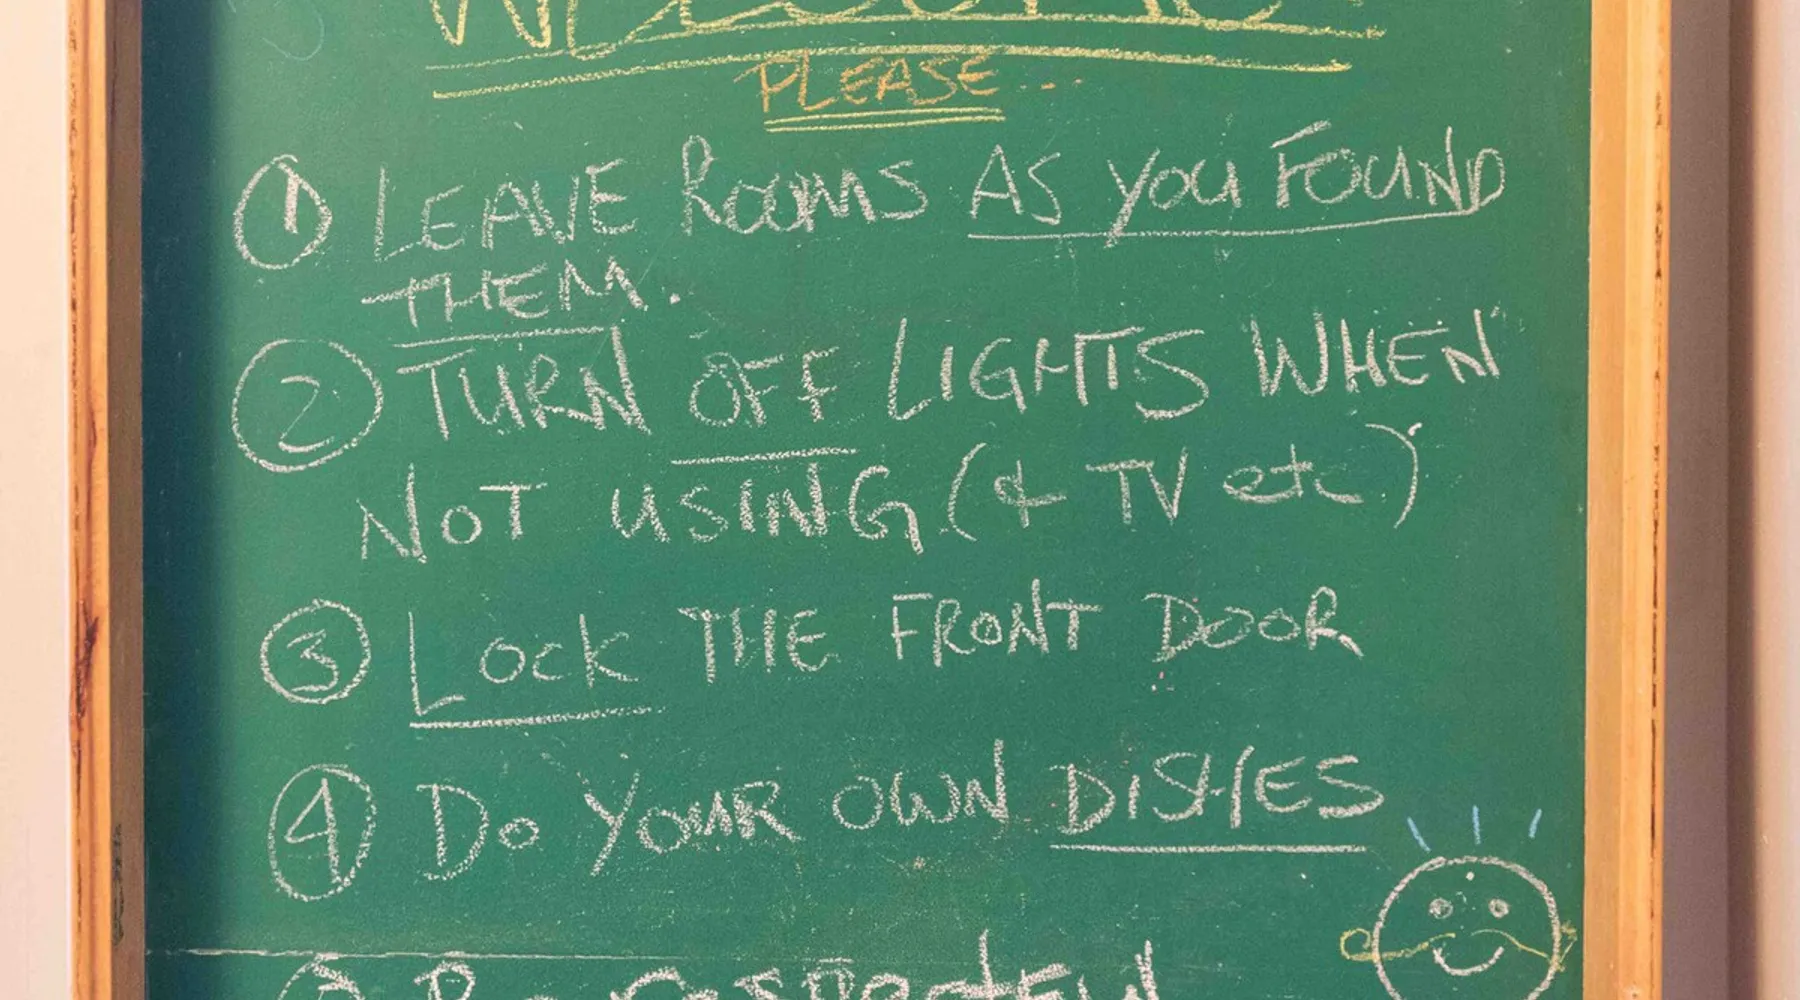 WELCOME
PLEASE...
1 LEAVE ROOMS AS YOU FOUND
THEM.
2 TURN OFF LIGHTS WHEN
NOT USING (& TV etc)
3 LOCK THE FRONT DOOR
4 DO YOUR OWN DISHES